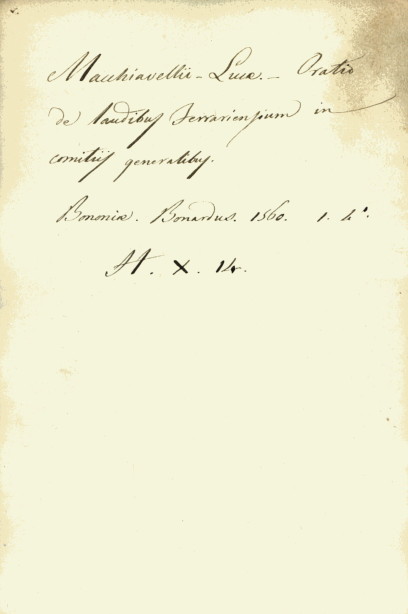 Macchiavellii - Lucæ. - Oratio
de laudibus Ferrariensium in
comitiis generalibus.
Bononiæ. Bonardus. 1560. 1. 4°.
H. X. 14.